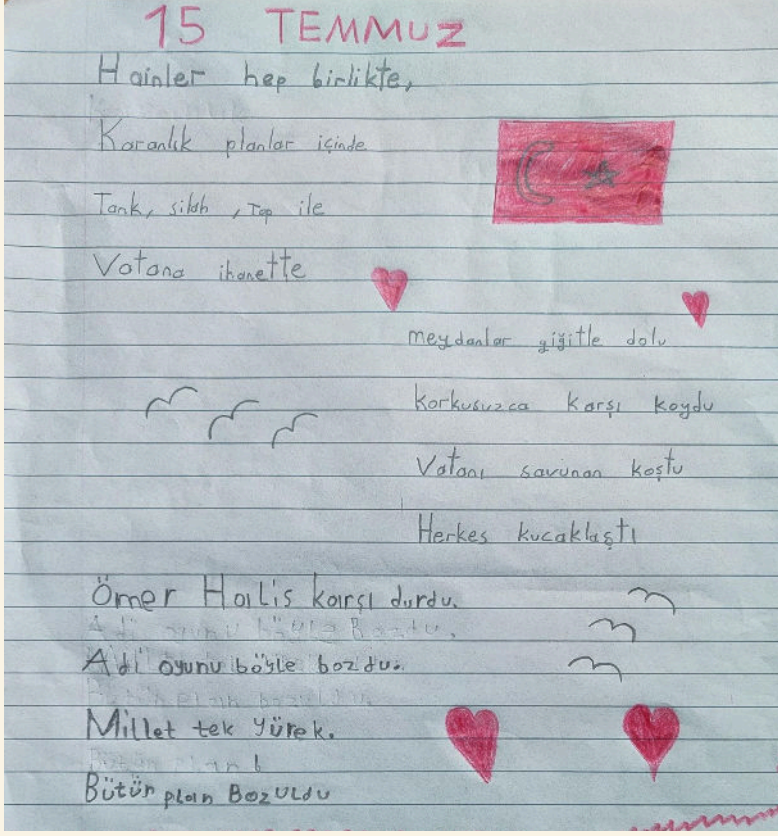 15 TEMMUZ
Hainler hep birlikte,
Karanlık planlar içinde
Tank, silah, Top ile
Vatana ihanette
meydanlar yiğitle dolu
korkusuzca karşı koydu
Vatanı savunan koştu
Herkes kucaklaştı
Ömer Halis karşı durdu.
Adi oyunu böyle Bozdu.
Adi oyunu böyle bozdu.
Millet tek yürek.
Bütün plan b
Bütün plan BozuLdu